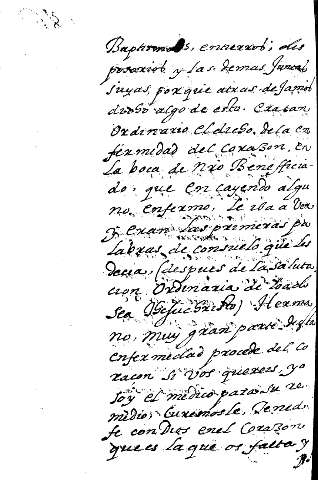 Baptismos, entierros, dis
posorios y las demas Juncis
suyas, porque atras dejamos
dicho algo de esto. Era tan
Ordinario el dicho, de la en
fermedad del corazon, en
la boca de Nro Beneficia
do: que en cayendo algu
no enfermo, le iba a ver
y eran las primeras pa
labras de consuelo que les
decia, (despues de la saluta
cion Ordinaria de loado
sea Jesucristo) Herma
no, muy gran parte de esta
enfermedad procede del co
racon si vos quereis, yo
soy el medico para su re
medio; Curemosle, Tened
fe con Dios en el Corazon
que es la que os falta y